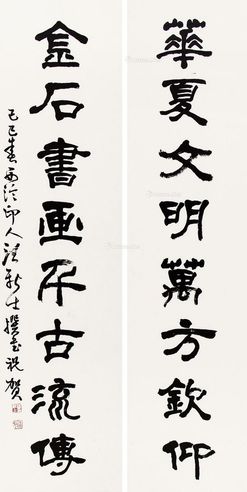 華夏文明萬方欽仰
金石書画千古流傳
己巳春西泠印人
撰并祝賀